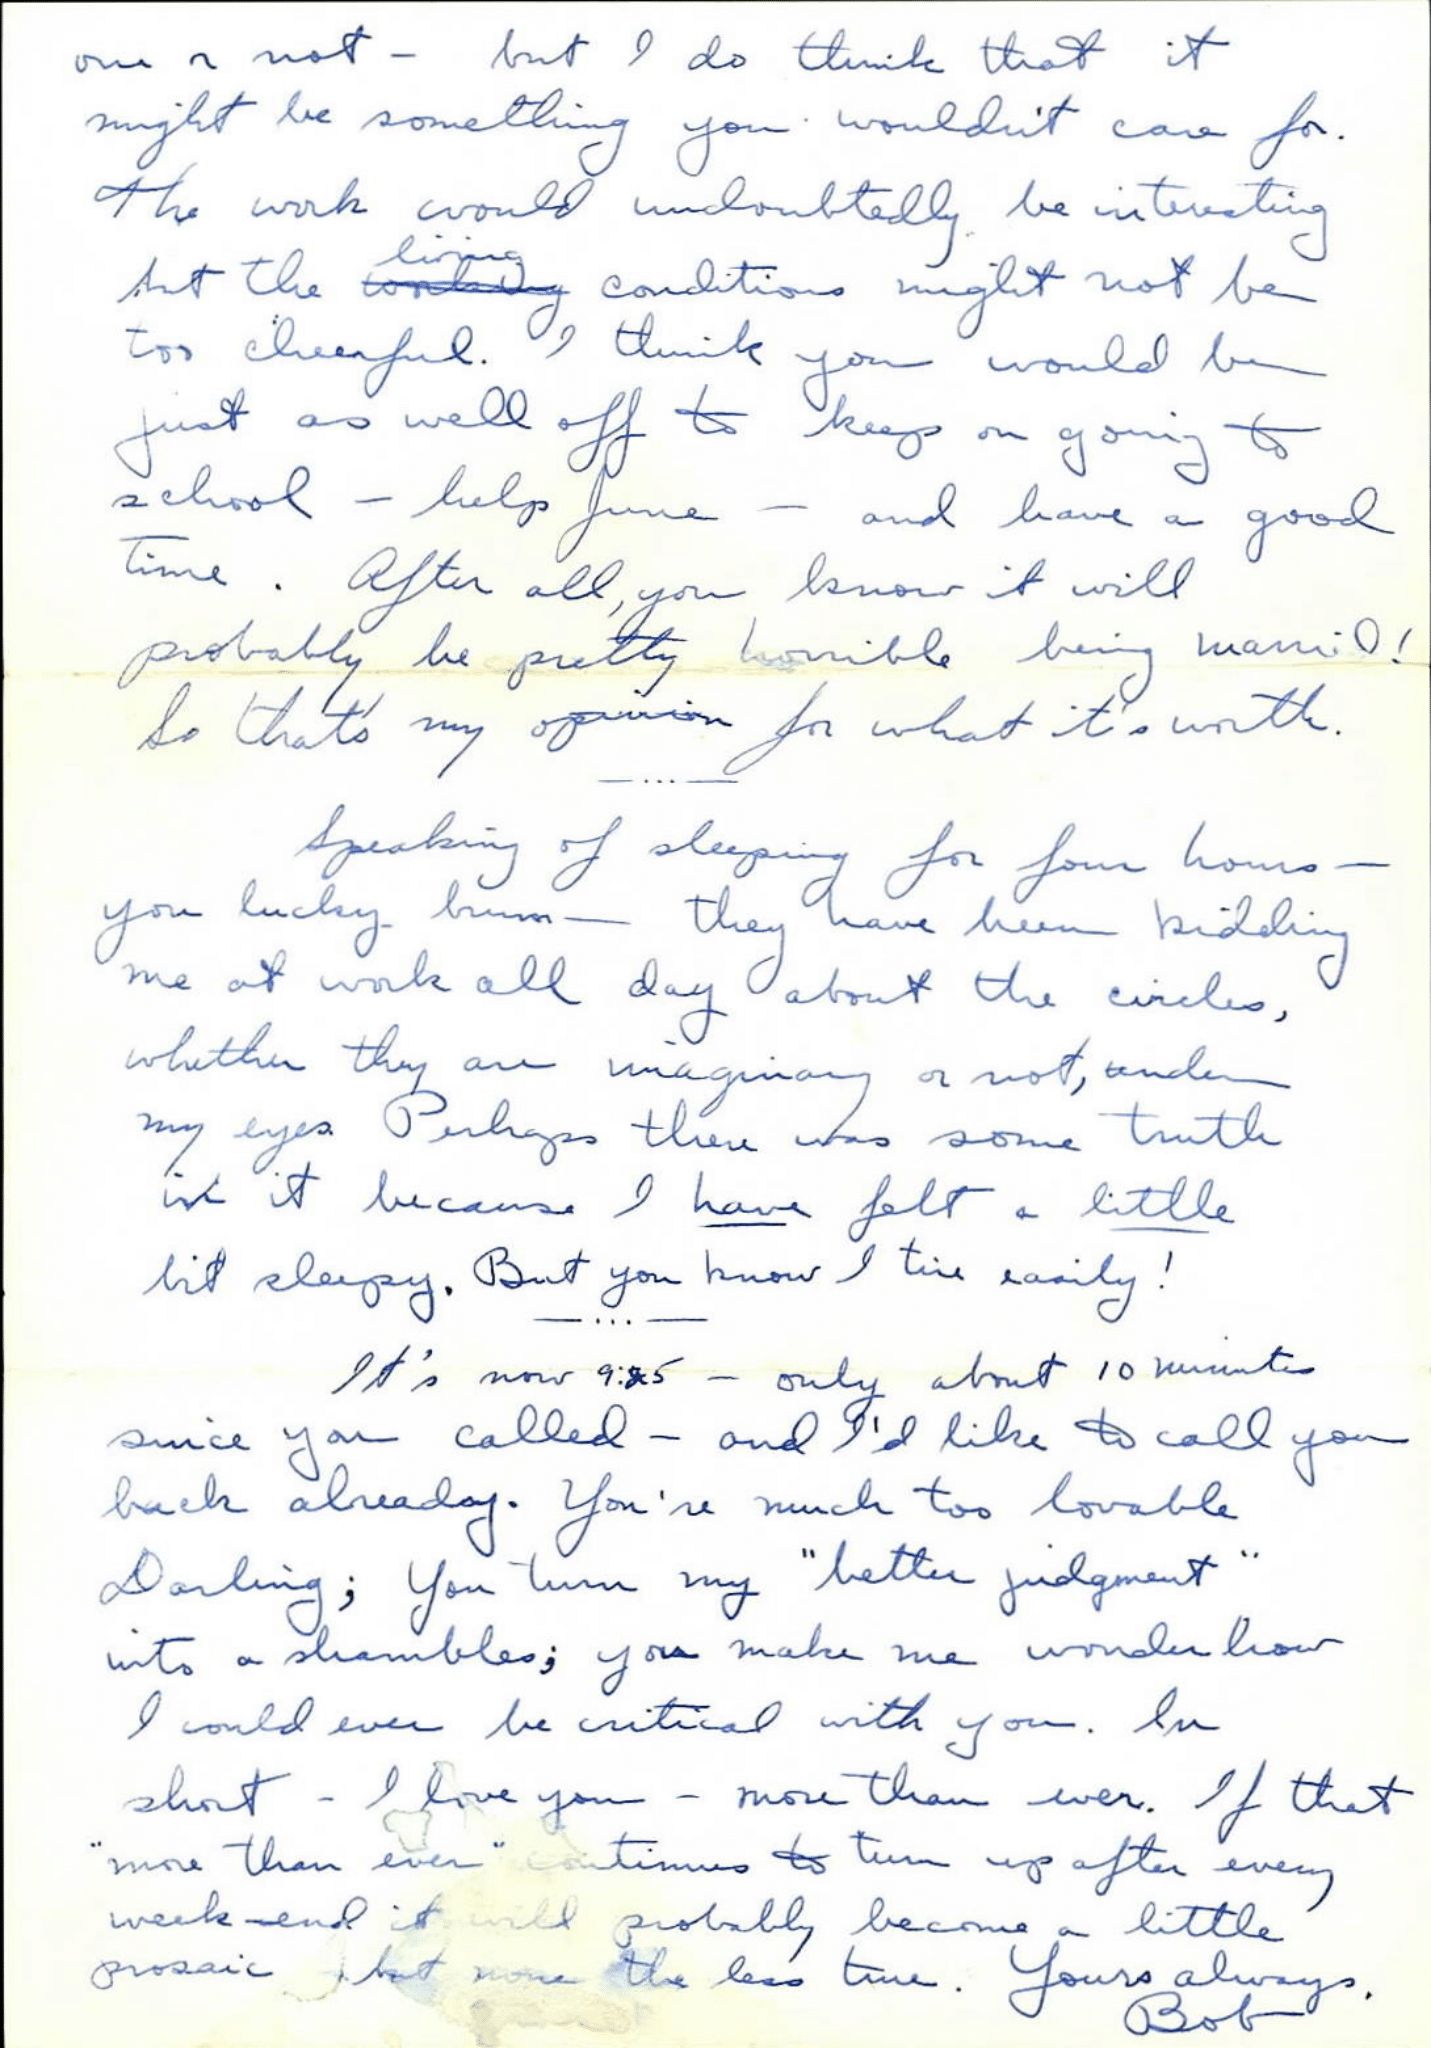 one or not - but I do think that it
might be something you wouldn't care for.
The work would undoubtedly be interesting
but the living working conditions might not be
too cheerful. I think you would be
just as well off to keep on going to
school - help June - and have a good
time. After all, you know it will
probably be pretty horrible being married!
So that's my opinion for what it's worth.
— ... —
Speaking of sleeping for four hours -
you lucky bum - they have been kidding
me at work all day about the circles,
whether they are imaginary or not, under
my eyes. Perhaps there was some truth
in it because I have felt a little
bit sleepy. But you know I tire easily!
— ... —
It's now - only about 10 minutes
since you called - and I'd like to call you
back already. You're much too lovable
Darling; You turn my "better judgment"
into a shambles; you make me wonder how
I could ever be critical with you. In
short - I love you - more than ever. If that
"more than ever" continues to turn up after every
week-end it will probably become a little
prosaic - but none the less true. Yours always.
Bob